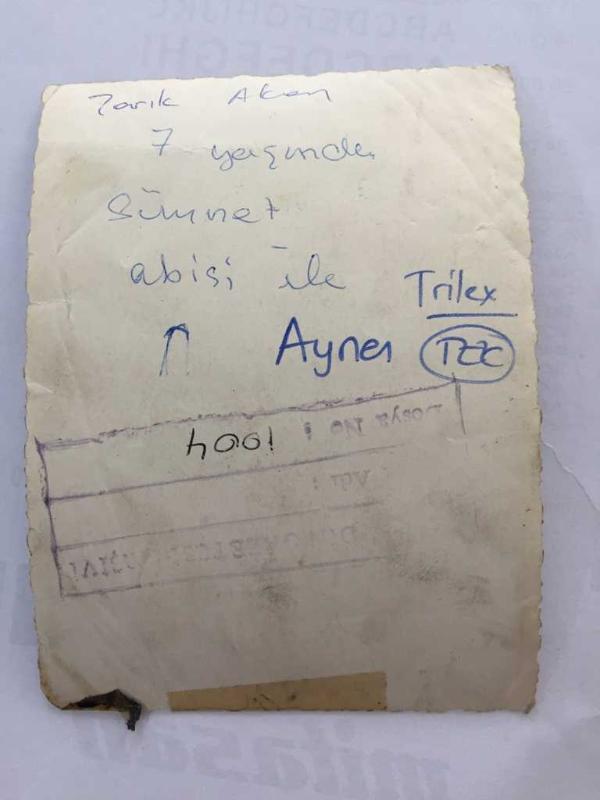 Tarık Akan
7 yaşında
Sünnet
abisi ile
Trilex
Aynen
1004
Dosya No :